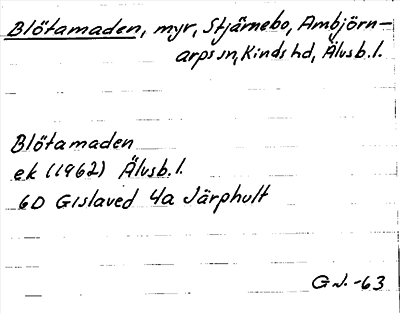 Blötamaden, myr, Stjärnebo, Ambjörn-
arps sn, Kinds hd, Älvsb. l.
Blötamaden
ek (1962) Älvsb. l.
6D Gislaved 4a Järphult
G.J. -63